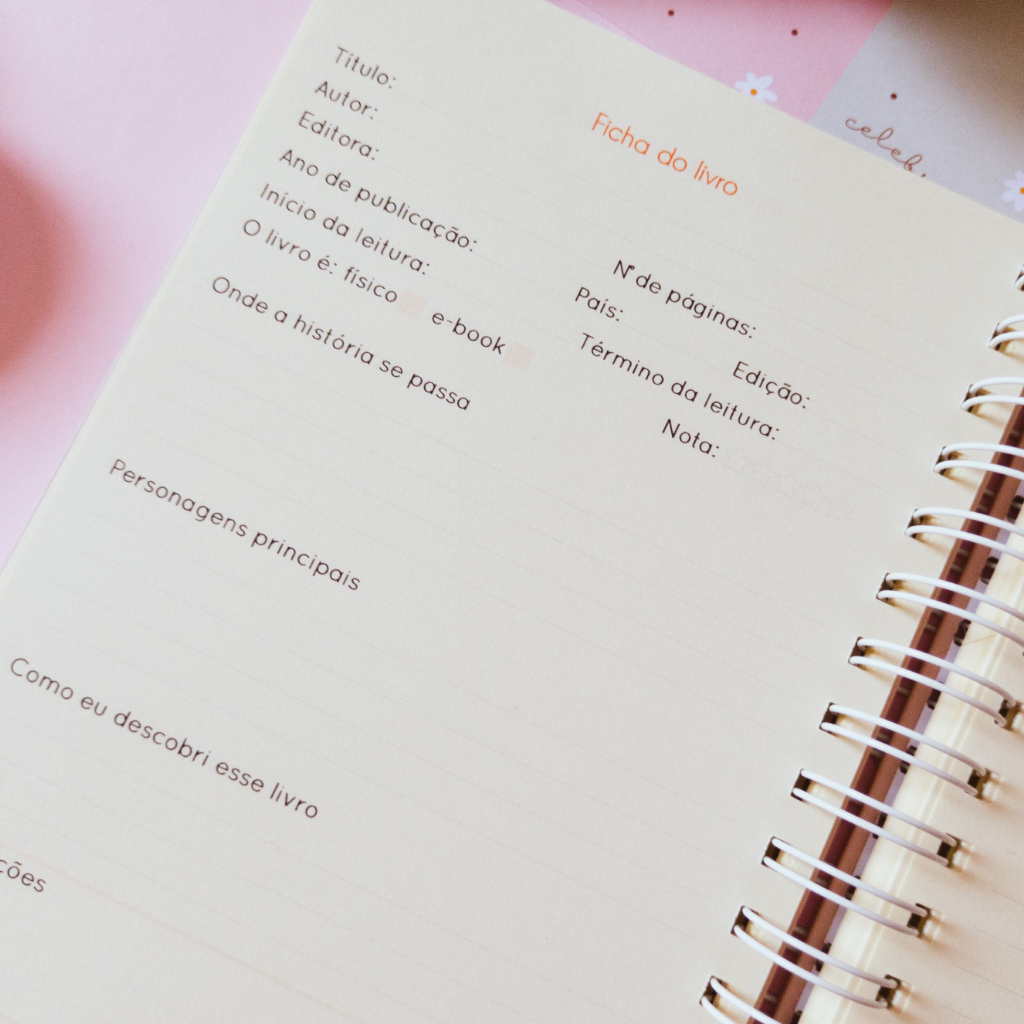 Ficha do livro
Título:
Autor:
Editora:
Nº de páginas:
Ano de publicação:
País:
Edição:
Início da leitura:
Término da leitura:
O livro é: físico e-book
Nota:
Onde a história se passa
Personagens principais
Como eu descobri esse livro
ções
celeb